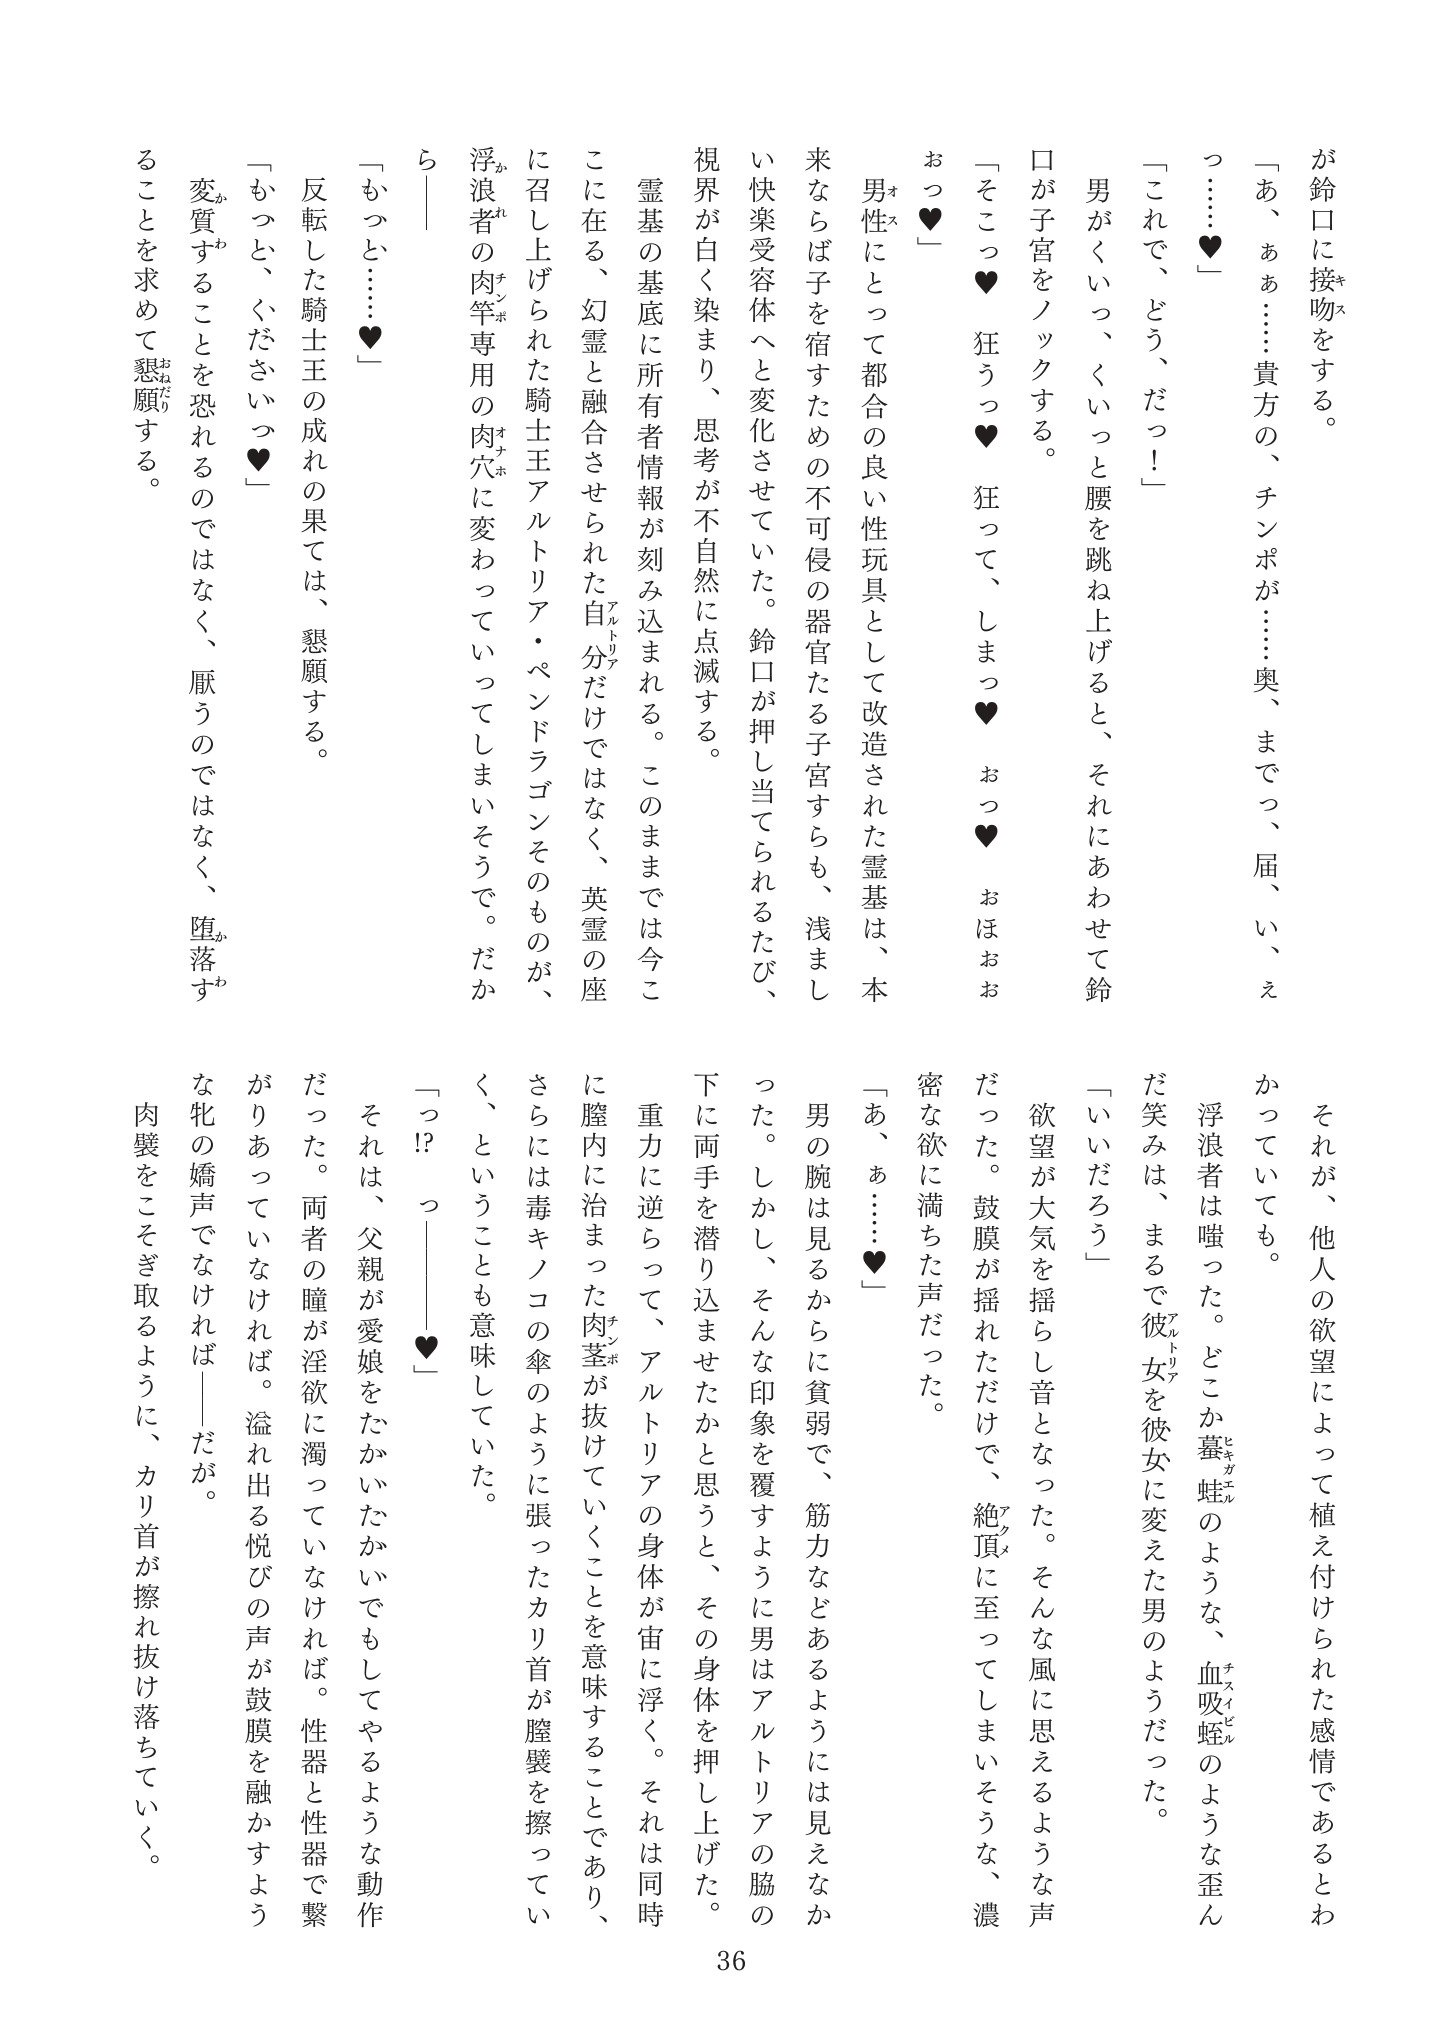 が鈴口に接吻(キス)をする。
「あ、ぁぁ……貴方の、チンポが……奥、までっ、届、い、ぇ
っ……♥」
「これで、どう、だっ！」
　男がくいっ、くいっと腰を跳ね上げると、それにあわせて鈴
口が子宮をノックする。
「そこっ♥　狂うっ♥　狂って、しまっ♥　ぉっ♥　ぉほぉぉ
ぉっ♥」
　男性(オス)にとって都合の良い性玩具として改造された霊基は、本
来ならば子を宿すための不可侵の器官たる子宮すらも、浅まし
い快楽受容体へと変化させていた。鈴口が押し当てられるたび、
視界が白く染まり、思考が不自然に点滅する。
　霊基の基底に所有者情報が刻み込まれる。このままでは今こ
こに在る、幻霊と融合させられた自分(アルトリア)だけではなく、英霊の座
に召し上げられた騎士王アルトリア・ペンドラゴンそのものが、
浮浪者(かれ)の肉竿(チンポ)専用の肉穴(オナホ)に変わっていってしまいそうで。だか
ら――
「もっと……♥」
　反転した騎士王の成れの果ては、懇願する。
「もっと、くださいっ♥」
　変質す(かわ)ることを恐れるのではなく、厭うのではなく、堕落す(かわ)
ることを求めて懇願(おねだり)する。
　それが、他人の欲望によって植え付けられた感情であるとわ
かっていても。
　浮浪者は嗤った。どこか蟇蛙(ヒキガエル)のような、血吸蛭(チスイビル)のような歪ん
だ笑みは、まるで彼女(アルトリア)を彼女に変えた男のようだった。
「いいだろう」
　欲望が大気を揺らし音となった。そんな風に思えるような声
だった。鼓膜が揺れただけで、絶頂(アクメ)に至ってしまいそうな、濃
密な欲に満ちた声だった。
「あ、ぁ……♥」
　男の腕は見るからに貧弱で、筋力などあるようには見えなか
った。しかし、そんな印象を覆すように男はアルトリアの脇の
下に両手を潜り込ませたかと思うと、その身体を押し上げた。
　重力に逆らって、アルトリアの身体が宙に浮く。それは同時
に膣内に治まった肉茎(チンポ)が抜けていくことを意味することであり、
さらには毒キノコの傘のように張ったカリ首が膣襞を擦ってい
く、ということも意味していた。
「っ!?　っ――――♥」
　それは、父親が愛娘をたかいたかいでもしてやるような動作
だった。両者の瞳が淫欲に濁っていなければ。性器と性器で繋
がりあっていなければ。溢れ出る悦びの声が鼓膜を融かすよう
な牝の嬌声でなければ――だが。
　肉襞をこそぎ取るように、カリ首が擦れ抜け落ちていく。
36